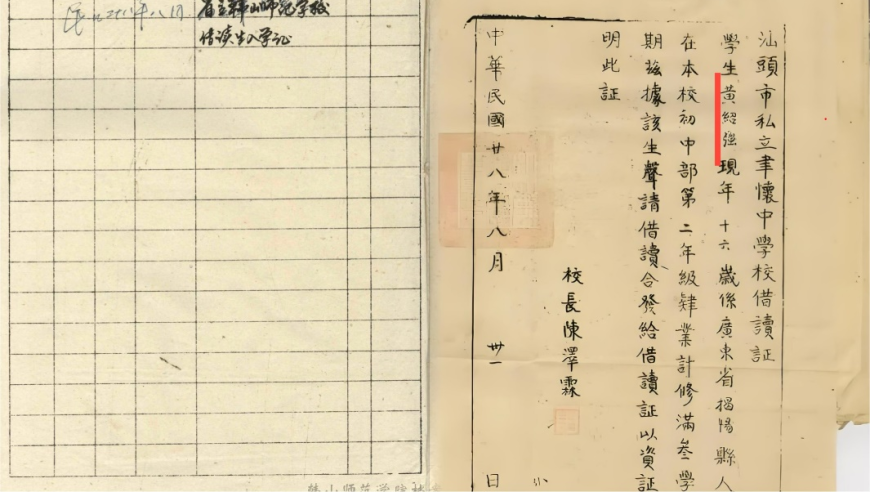 民国二十八年八月
省立韩山师范学校
借读生入学证
汕頭市私立聿懷中學校借讀証
學生黃紹強現年十六歲係廣東省揭陽縣人
在本校初中部第二年級肄業計修滿叁學
期茲據該生聲請借讀合發給借讀証以資証
明此証
校長陳澤霖
中華民國廿八年八月卅一日